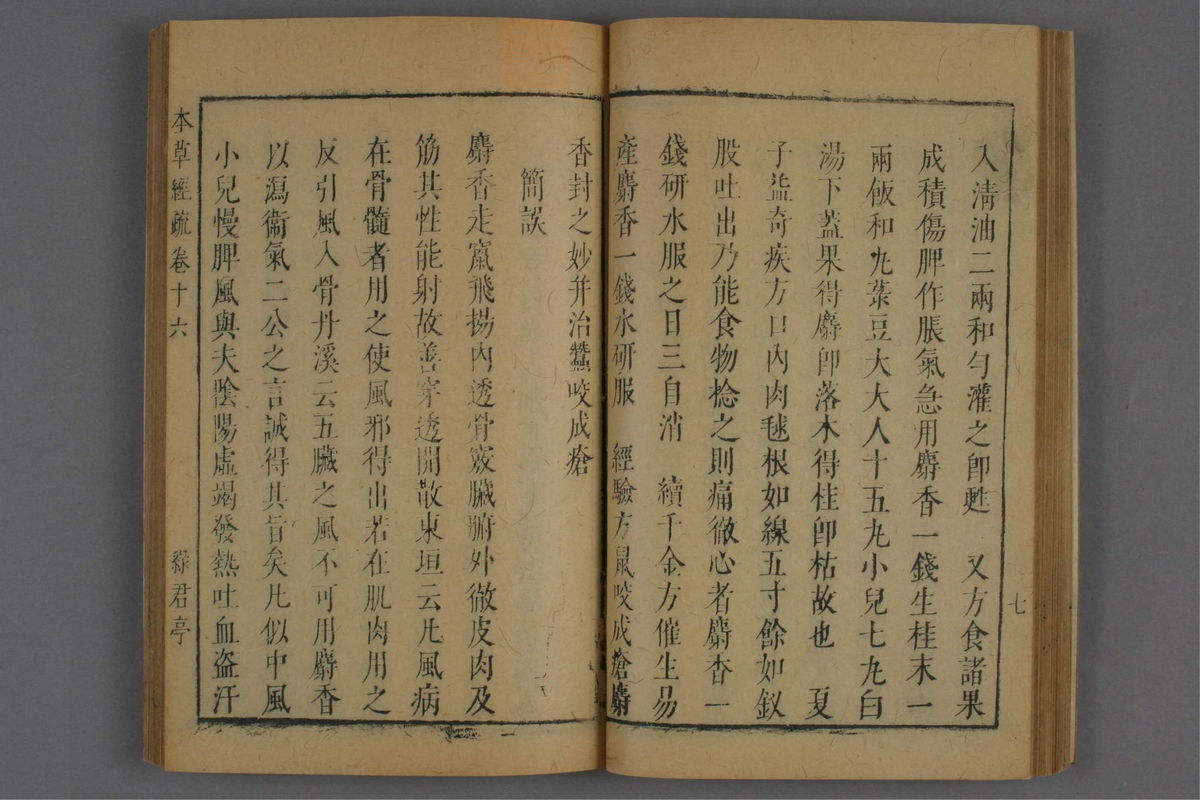 七
入淸油二兩和勻灌之卽甦　又方食諸果
成積傷脾作脹氣急用麝香一錢生桂末一
兩飯和丸菉豆大大人十五丸小兒七丸白
湯下蓋果得麝卽落木得桂卽枯故也　夏
子益奇疾方口內肉毬根如線五寸餘如釵
股吐出乃能食物捻之則痛徹心者麝香一
錢研水服之日三自消　續千金方催生易
產麝香一錢水研服　經驗方鼠咬成瘡麝
香封之妙幷治蠶咬成瘡
簡誤
麝香走竄飛揚內透骨竅臟腑外徹皮肉及
筋其性能射故善穿透開散東垣云凡風病
在骨髓者用之使風邪得出若在肌肉用之
反引風入骨丹溪云五臟之風不可用麝香
以瀉衞氣二公之言誠得其旨矣凡似中風
小兒慢脾風與夫陰陽虛竭發熱吐血盜汗
本草經疏卷十六　綠君亭